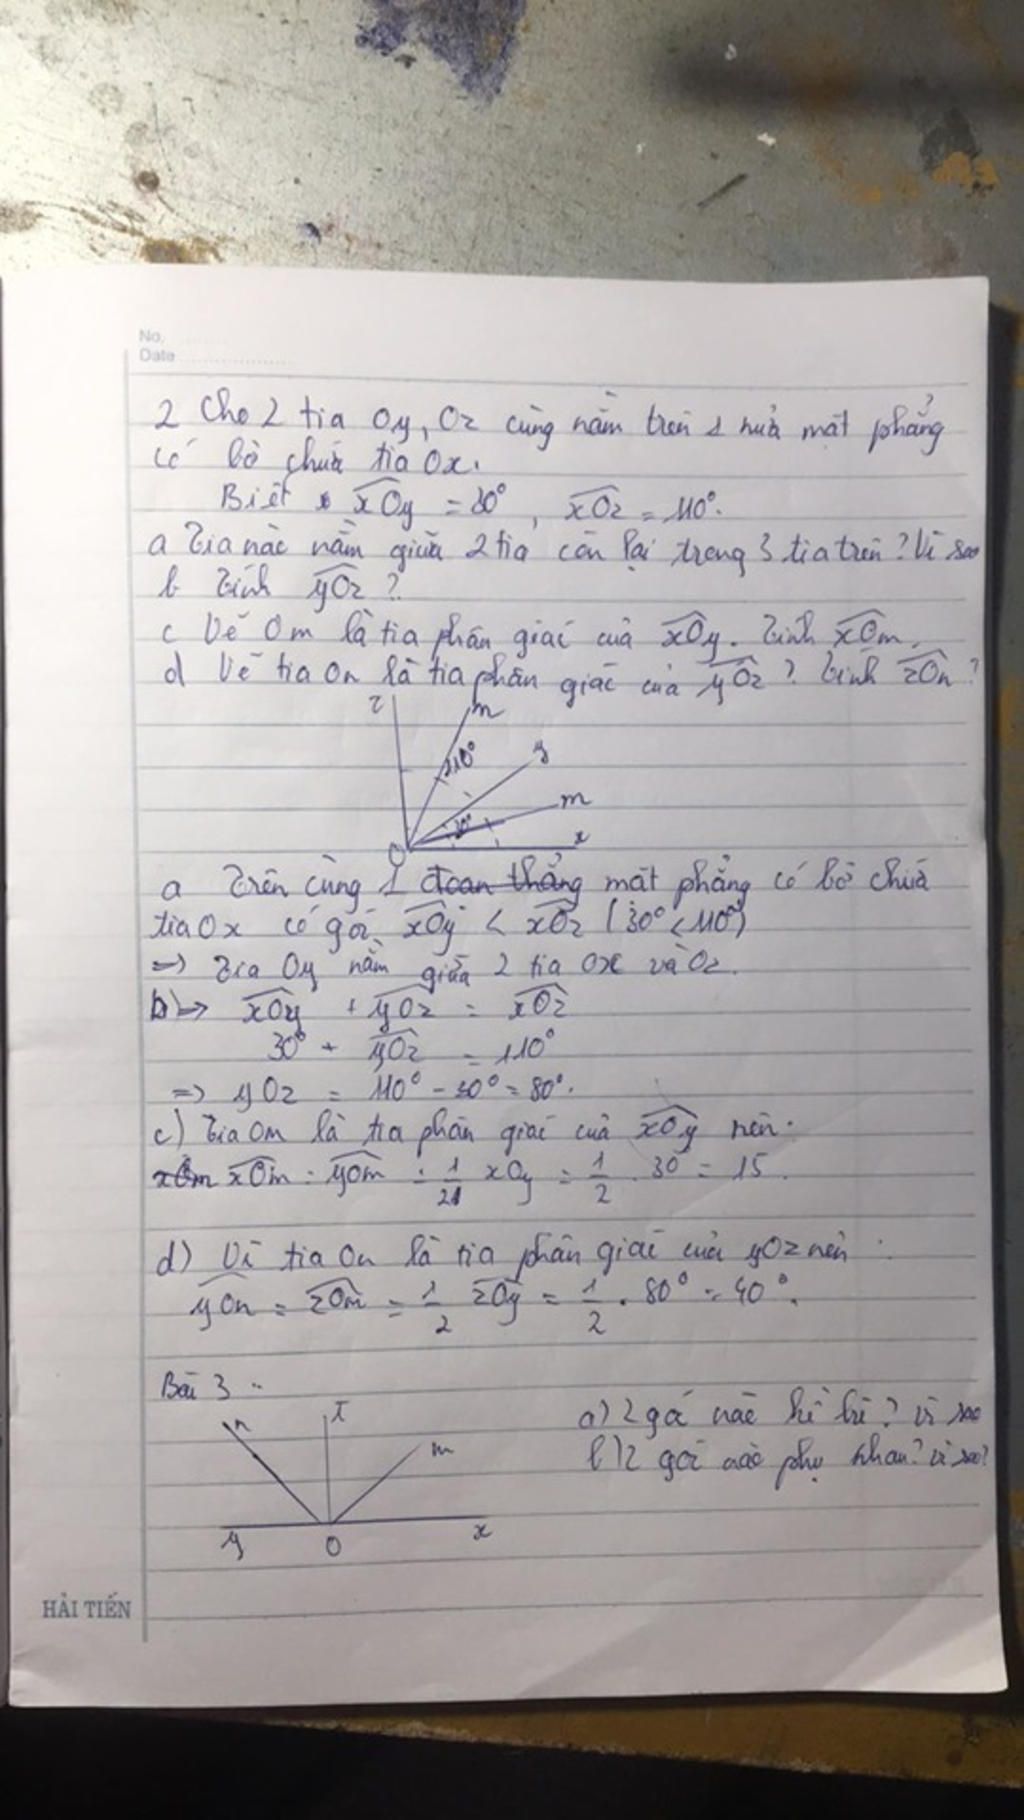 No.
Date
2 Cho 2 tia Oy, Oz cùng nằm trên 1 nửa mặt phẳng
có bờ chứa tia Ox.
Biết xOy = 30°, xOz = 110°.
a Tia nào nằm giữa 2 tia còn lại trong 3 tia trên? Vì sao
b Tính yOz?
c Vẽ Om là tia phân giác của xOy. Tính xOm.
d Vẽ tia On là tia phân giác của yOz? Tính zOn?
z
n
110°
y
m
30°
x
O
a Trên cùng 1 đoạn thẳng mặt phẳng có bờ chứa
tia Ox có góc xOy < xOz (30° < 110°)
=> Tia Oy nằm giữa 2 tia Ox và Oz.
b) => xOy + yOz = xOz
30° + yOz = 110°
=> yOz = 110° - 30° = 80°.
c) Tia Om là tia phân giác của xOy nên.
xOm xOm = yOm = 1/2 xOy = 1/2 . 30 = 15.
d) Vì tia On là tia phân giác của yOz nên:
yOn = zOn = 1/2 zOy = 1/2 . 80° = 40°.
Bài 3
a) 2 góc nào kề bù? vì sao
b) 2 góc nào phụ nhau? vì sao?
n
m
y
O
x
HẢI TIẾN